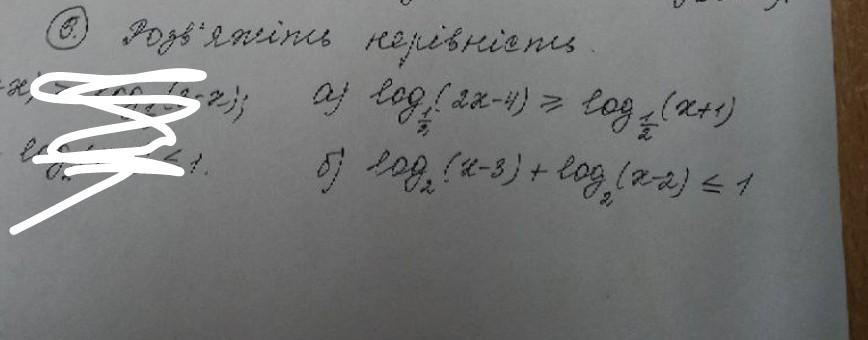 9. Розв'яжіть нерівність.
а) log_{1/2}(2x-4) ≥ log_{1/2}(x+1)
≤ 1.
б) log_2(x-3) + log_2(x-2) ≤ 1